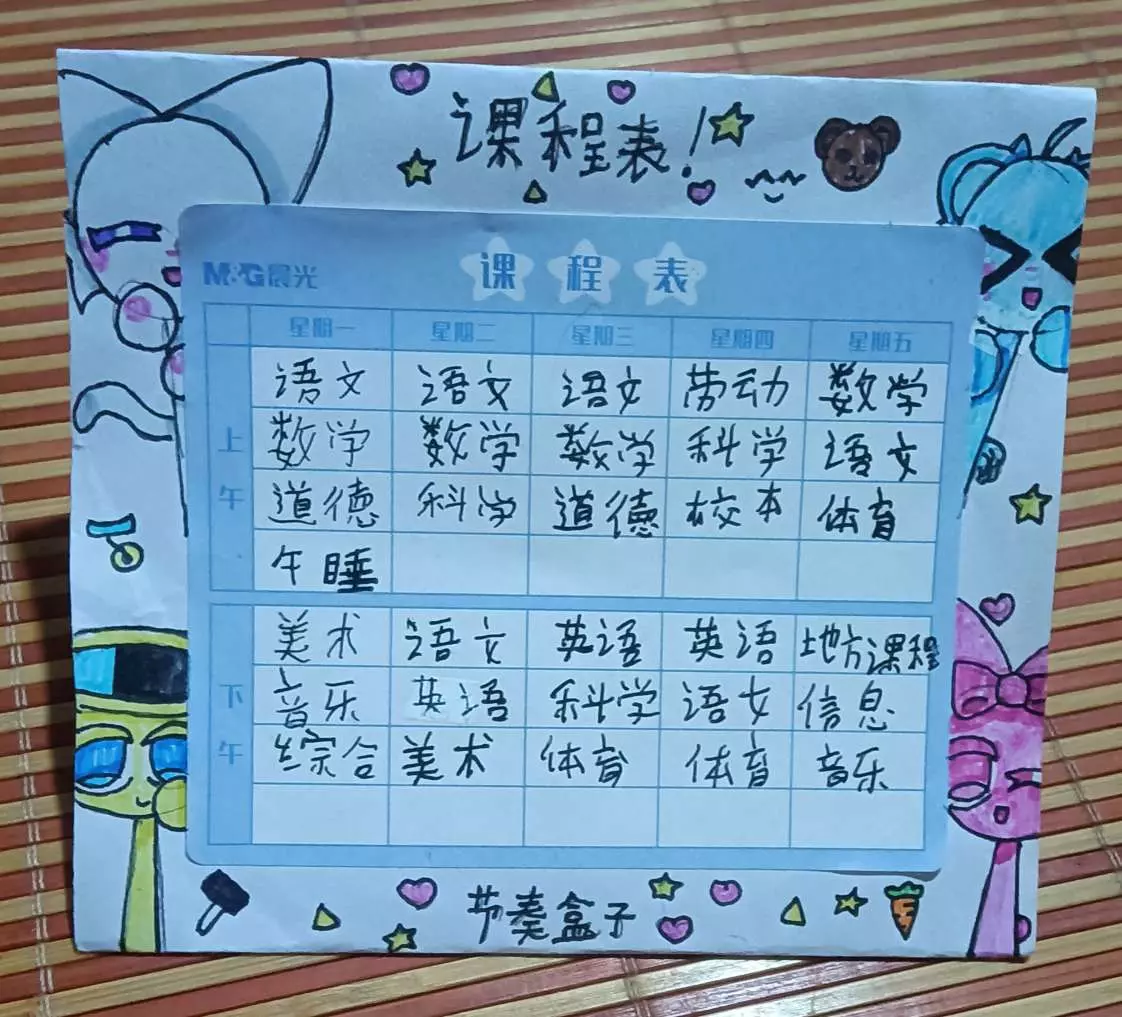 课程表!
M&G晨光
课程表
星期一 星期二 星期三 星期四 星期五
上午
语文 语文 语文 劳动 数学
数学 数学 数学 科学 语文
道德 科学 道德 校本 体育
午睡
下午
美术 语文 英语 英语 地方课程
音乐 英语 科学 语文 信息
综合 美术 体育 体育 音乐
节奏盒子